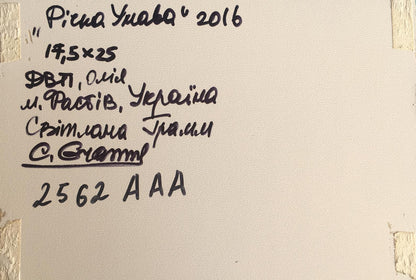 "Річка Унава" 2016
17,5×25
ДВП, олія
м. Фастів, Україна
Світлана Грамм
С. Грамм
2562 AAA